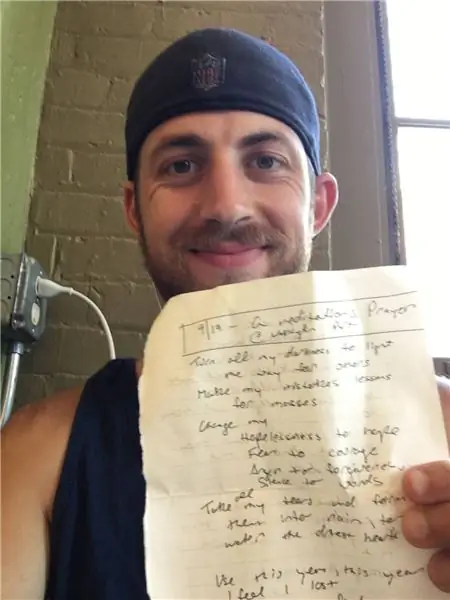 NFL
9/19 - A meditations Prayer
@
Turn all my darkness to light
me way for others
Make my mistakes lessons
for masses
Change my
Hopelessness to hope
Fear to courage
Anger to forgiveness
Silence to words
Take all my tears and form
them into rain, to
water the driest hearts
Use this year, this year
I feel I lost